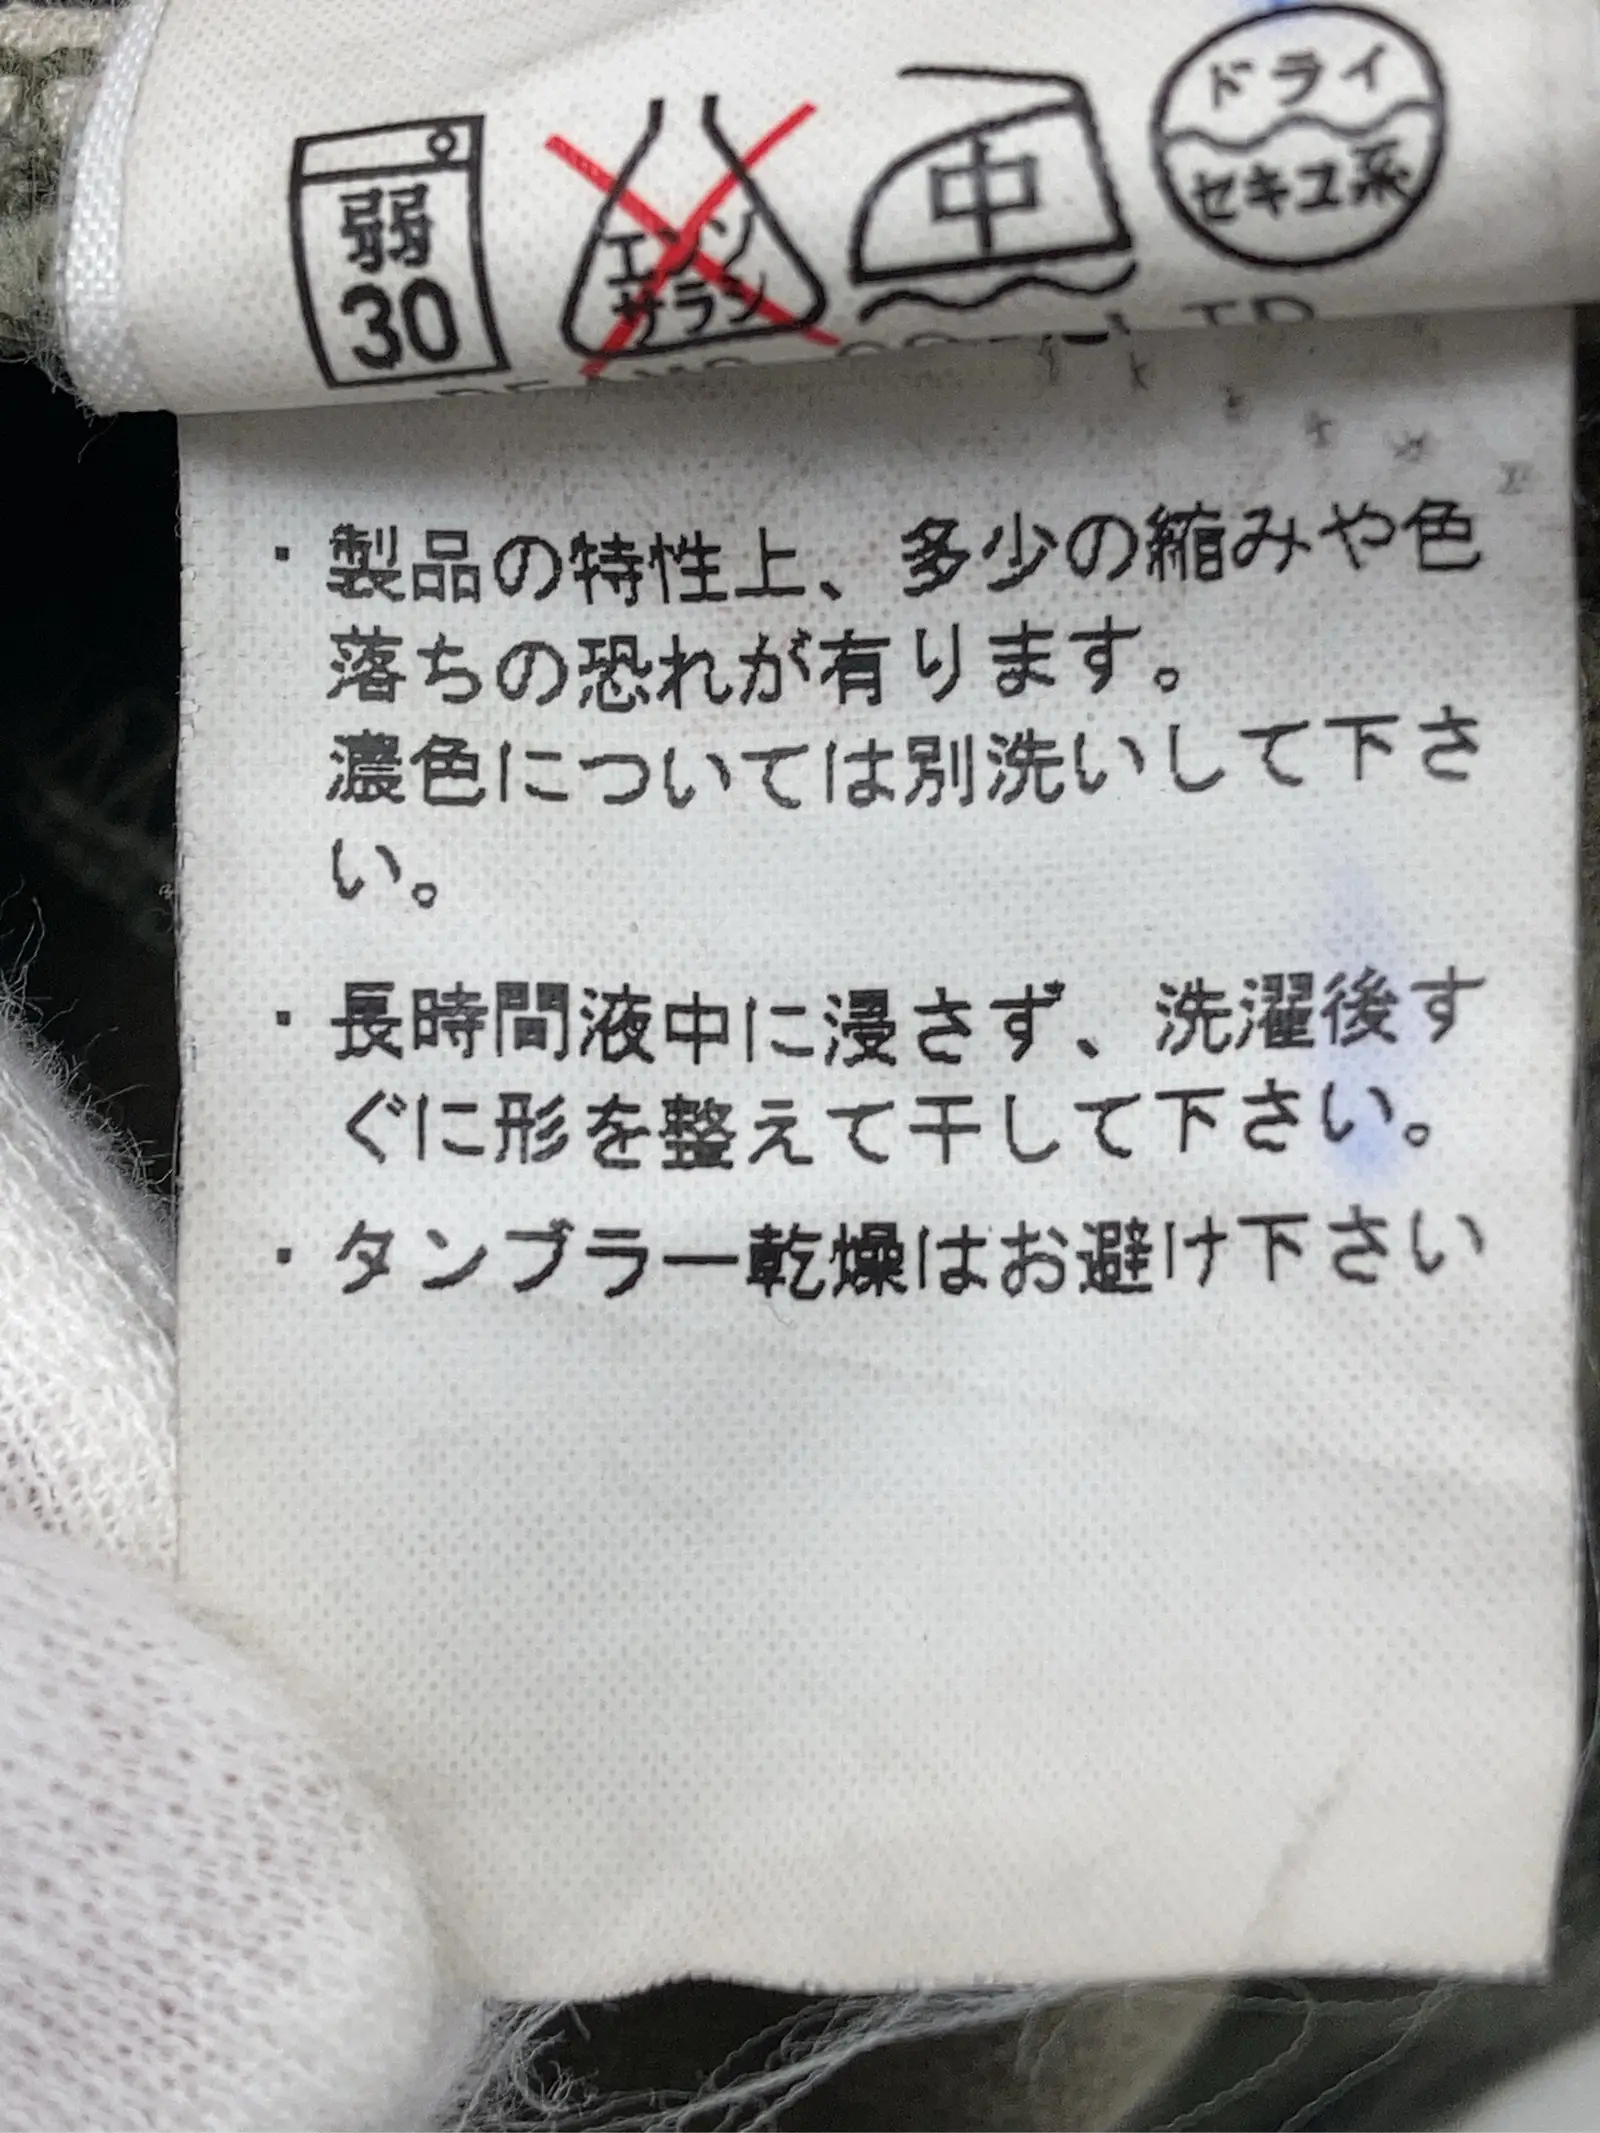 弱
30
エンソ
サラシ
中
ドライ
セキユ系
・製品の特性上、多少の縮みや色
落ちの恐れが有ります。
濃色については別洗いして下さ
い。
・長時間液中に浸さず、洗濯後す
ぐに形を整えて干して下さい。
・タンブラー乾燥はお避け下さい